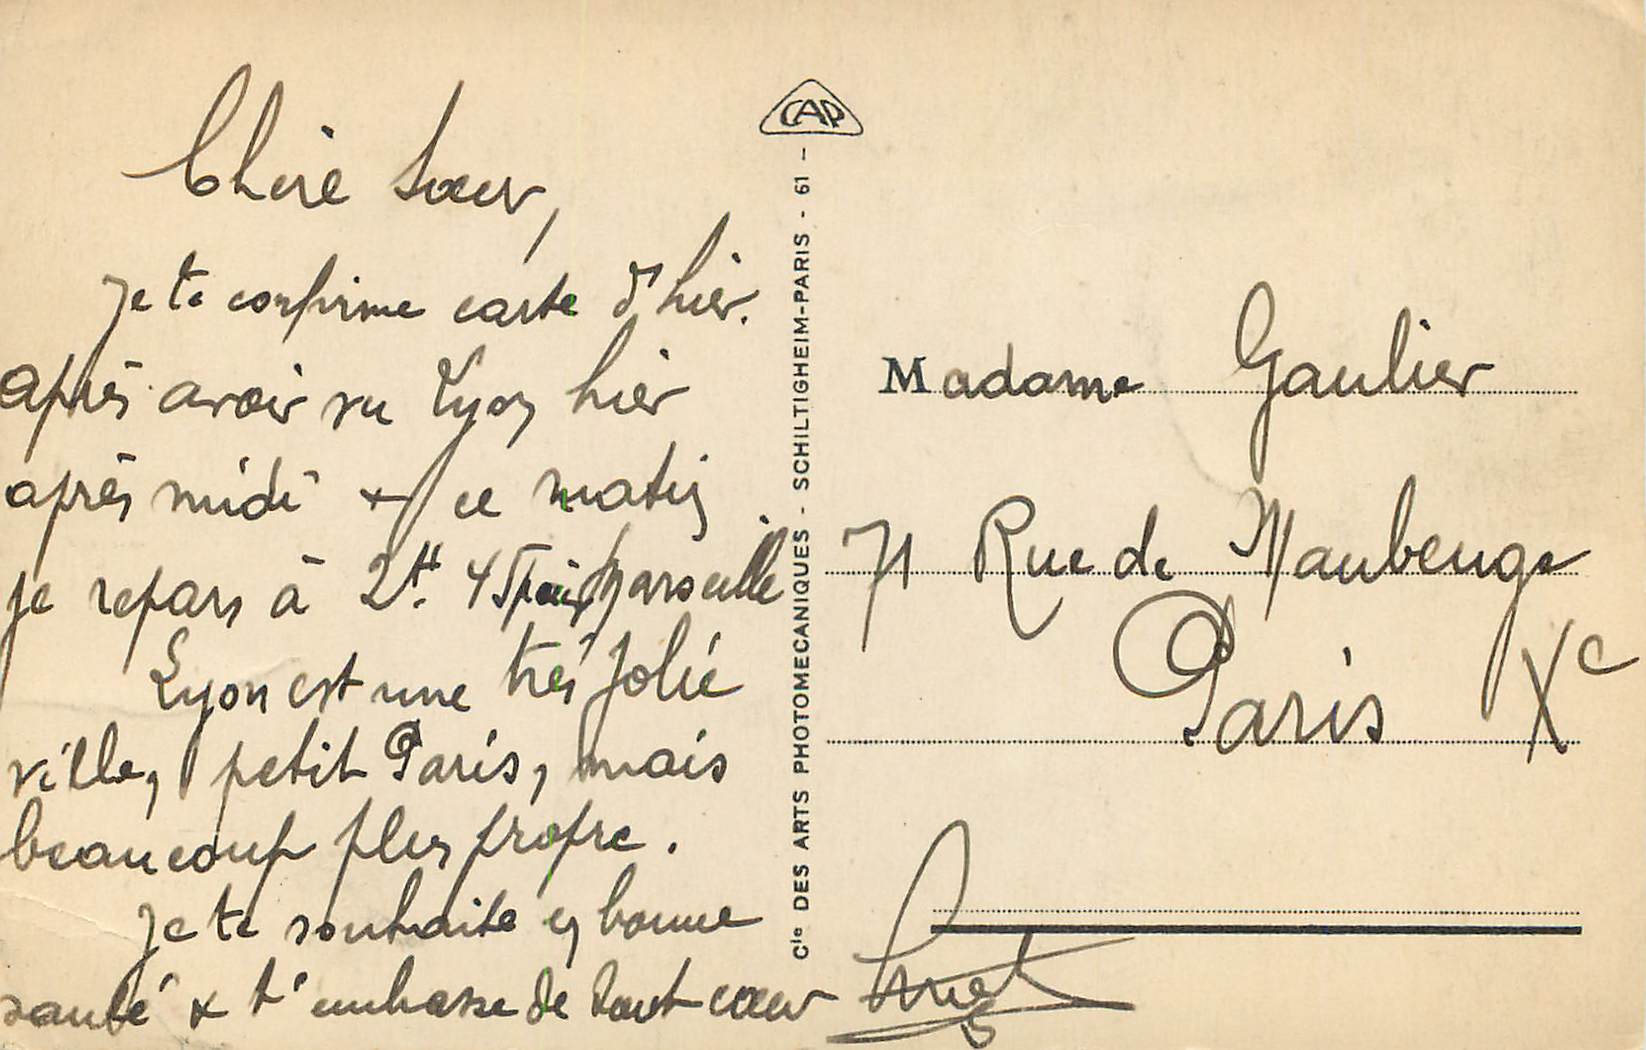 Chère Soeur,
Je te confirme carte d'hier.
après avoir vu Lyon hier
après midi & ce matin
je repars à 2H. 45 pour Marseille
Lyon est une très jolie
ville, petit Paris, mais
beaucoup plus propre.
Je te souhaite en bonne
santé & t'embrasse de tout coeur
CAP
Cie DES ARTS PHOTOMECANIQUES - SCHILTIGHEIM-PARIS - 61 -
Madame Gaulier
71 Rue de Maubeuge
Paris Xe